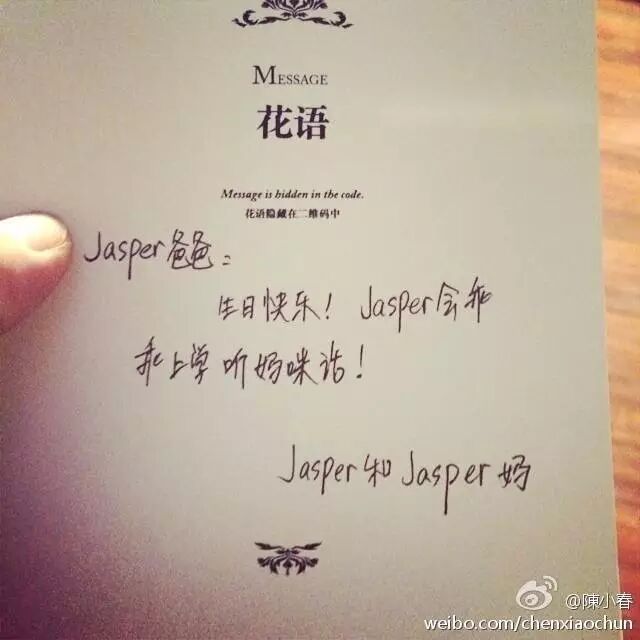 MESSAGE
花语
Message is hidden in the code.
花语隐藏在二维码中
Jasper爸爸：
生日快乐！Jasper会乖
乖上学听妈咪话！
Jasper和Jasper妈
@陳小春
weibo.com/chenxiaochun